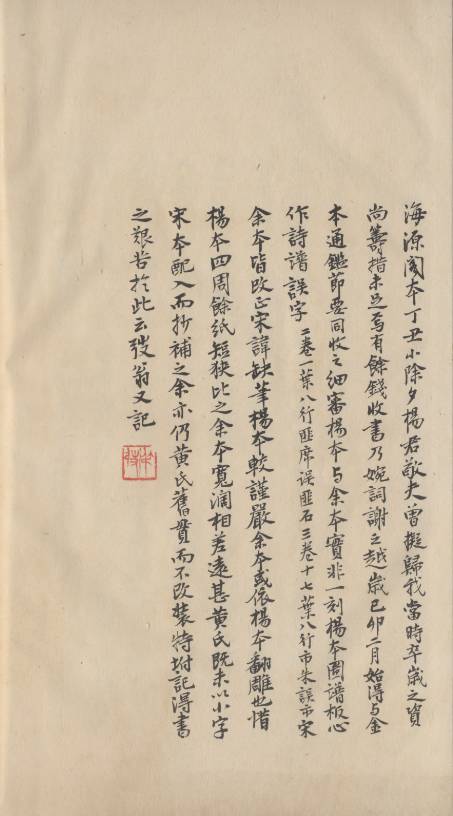 海源閣本丁丑小除夕楊君敬夫曾擬歸我當時卒歲之資
尚籌措未足焉有餘錢收書乃婉詞謝之越歲己卯二月始得与金
本通鑑節要同收之細審楊本与余本實非一刻楊本圖譜板心
作詩譜誤字二卷一葉八行匪席误匪石三卷十七葉八行市朱誤市宋
余本皆改正宋諱缺筆楊本較謹嚴余本或依楊本翻雕也惜
楊本四周餘紙短狹比之余本寬濶相差遠甚黄氏既未以小字
宋本配入而抄補之余亦仍黄氏舊貫而不改裝特坿記得書
之艱苦於此云弢翁又記